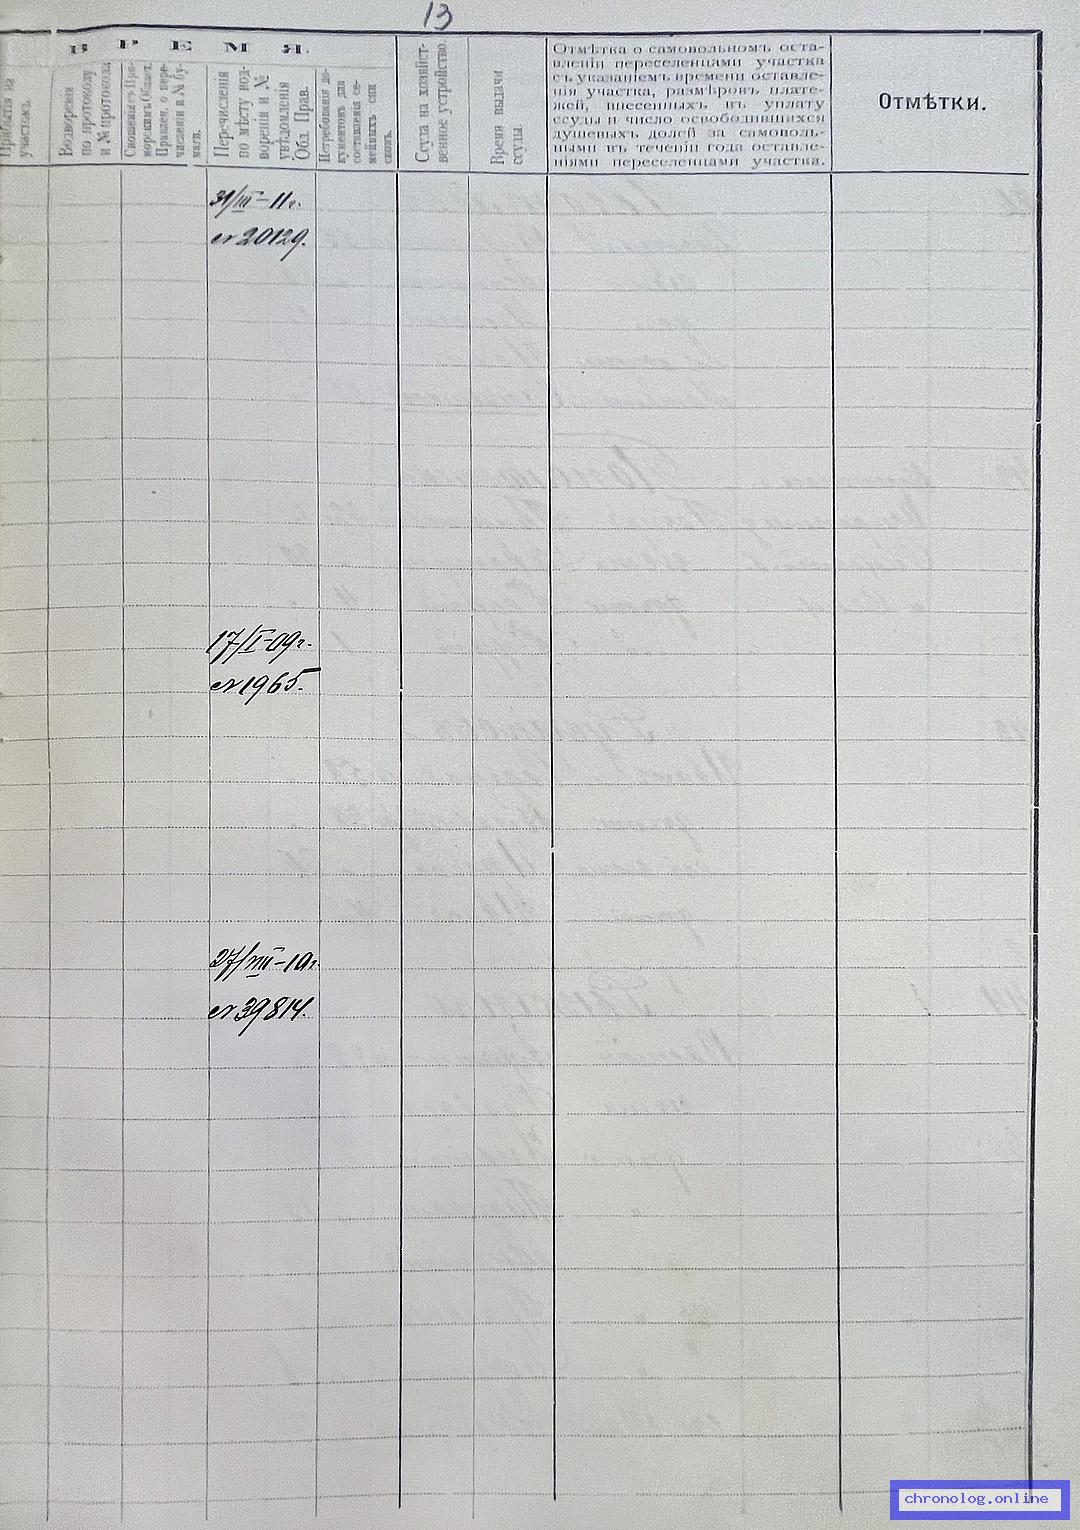 13
ВРЕМЯ.
Прибытія на
участокъ.
Водворенія
по протоколу
и № протокола
Сношенія съ При-
морскимъ Област.
Правлен. о пере-
численіи и № бу-
маги.
Перечисленія
по мѣсту вод-
воренія и №
увѣдомленія
Обл. Прав.
Истребованія до-
кументовъ для
составленія се-
мейныхъ спи
сковъ.
Ссуда на хозяйст-
венное устройство.
Время выдачи
ссуды.
Отмѣтка о самовольномъ оста-
вленіи переселенцами участка
съ указаніемъ времени оставле-
нія участка, размѣровъ плате-
жей, внесенныхъ въ уплату
ссуды и число освободившихся
душевыхъ долей за самоволь-
нымъ въ теченіи года оставле-
ніями переселенцами участка.
ОТМѢТКИ.
31/III-11г.
№20129.
17/I-09г.
№1965.
27/VIII-10г.
№39814.
chronolog.online